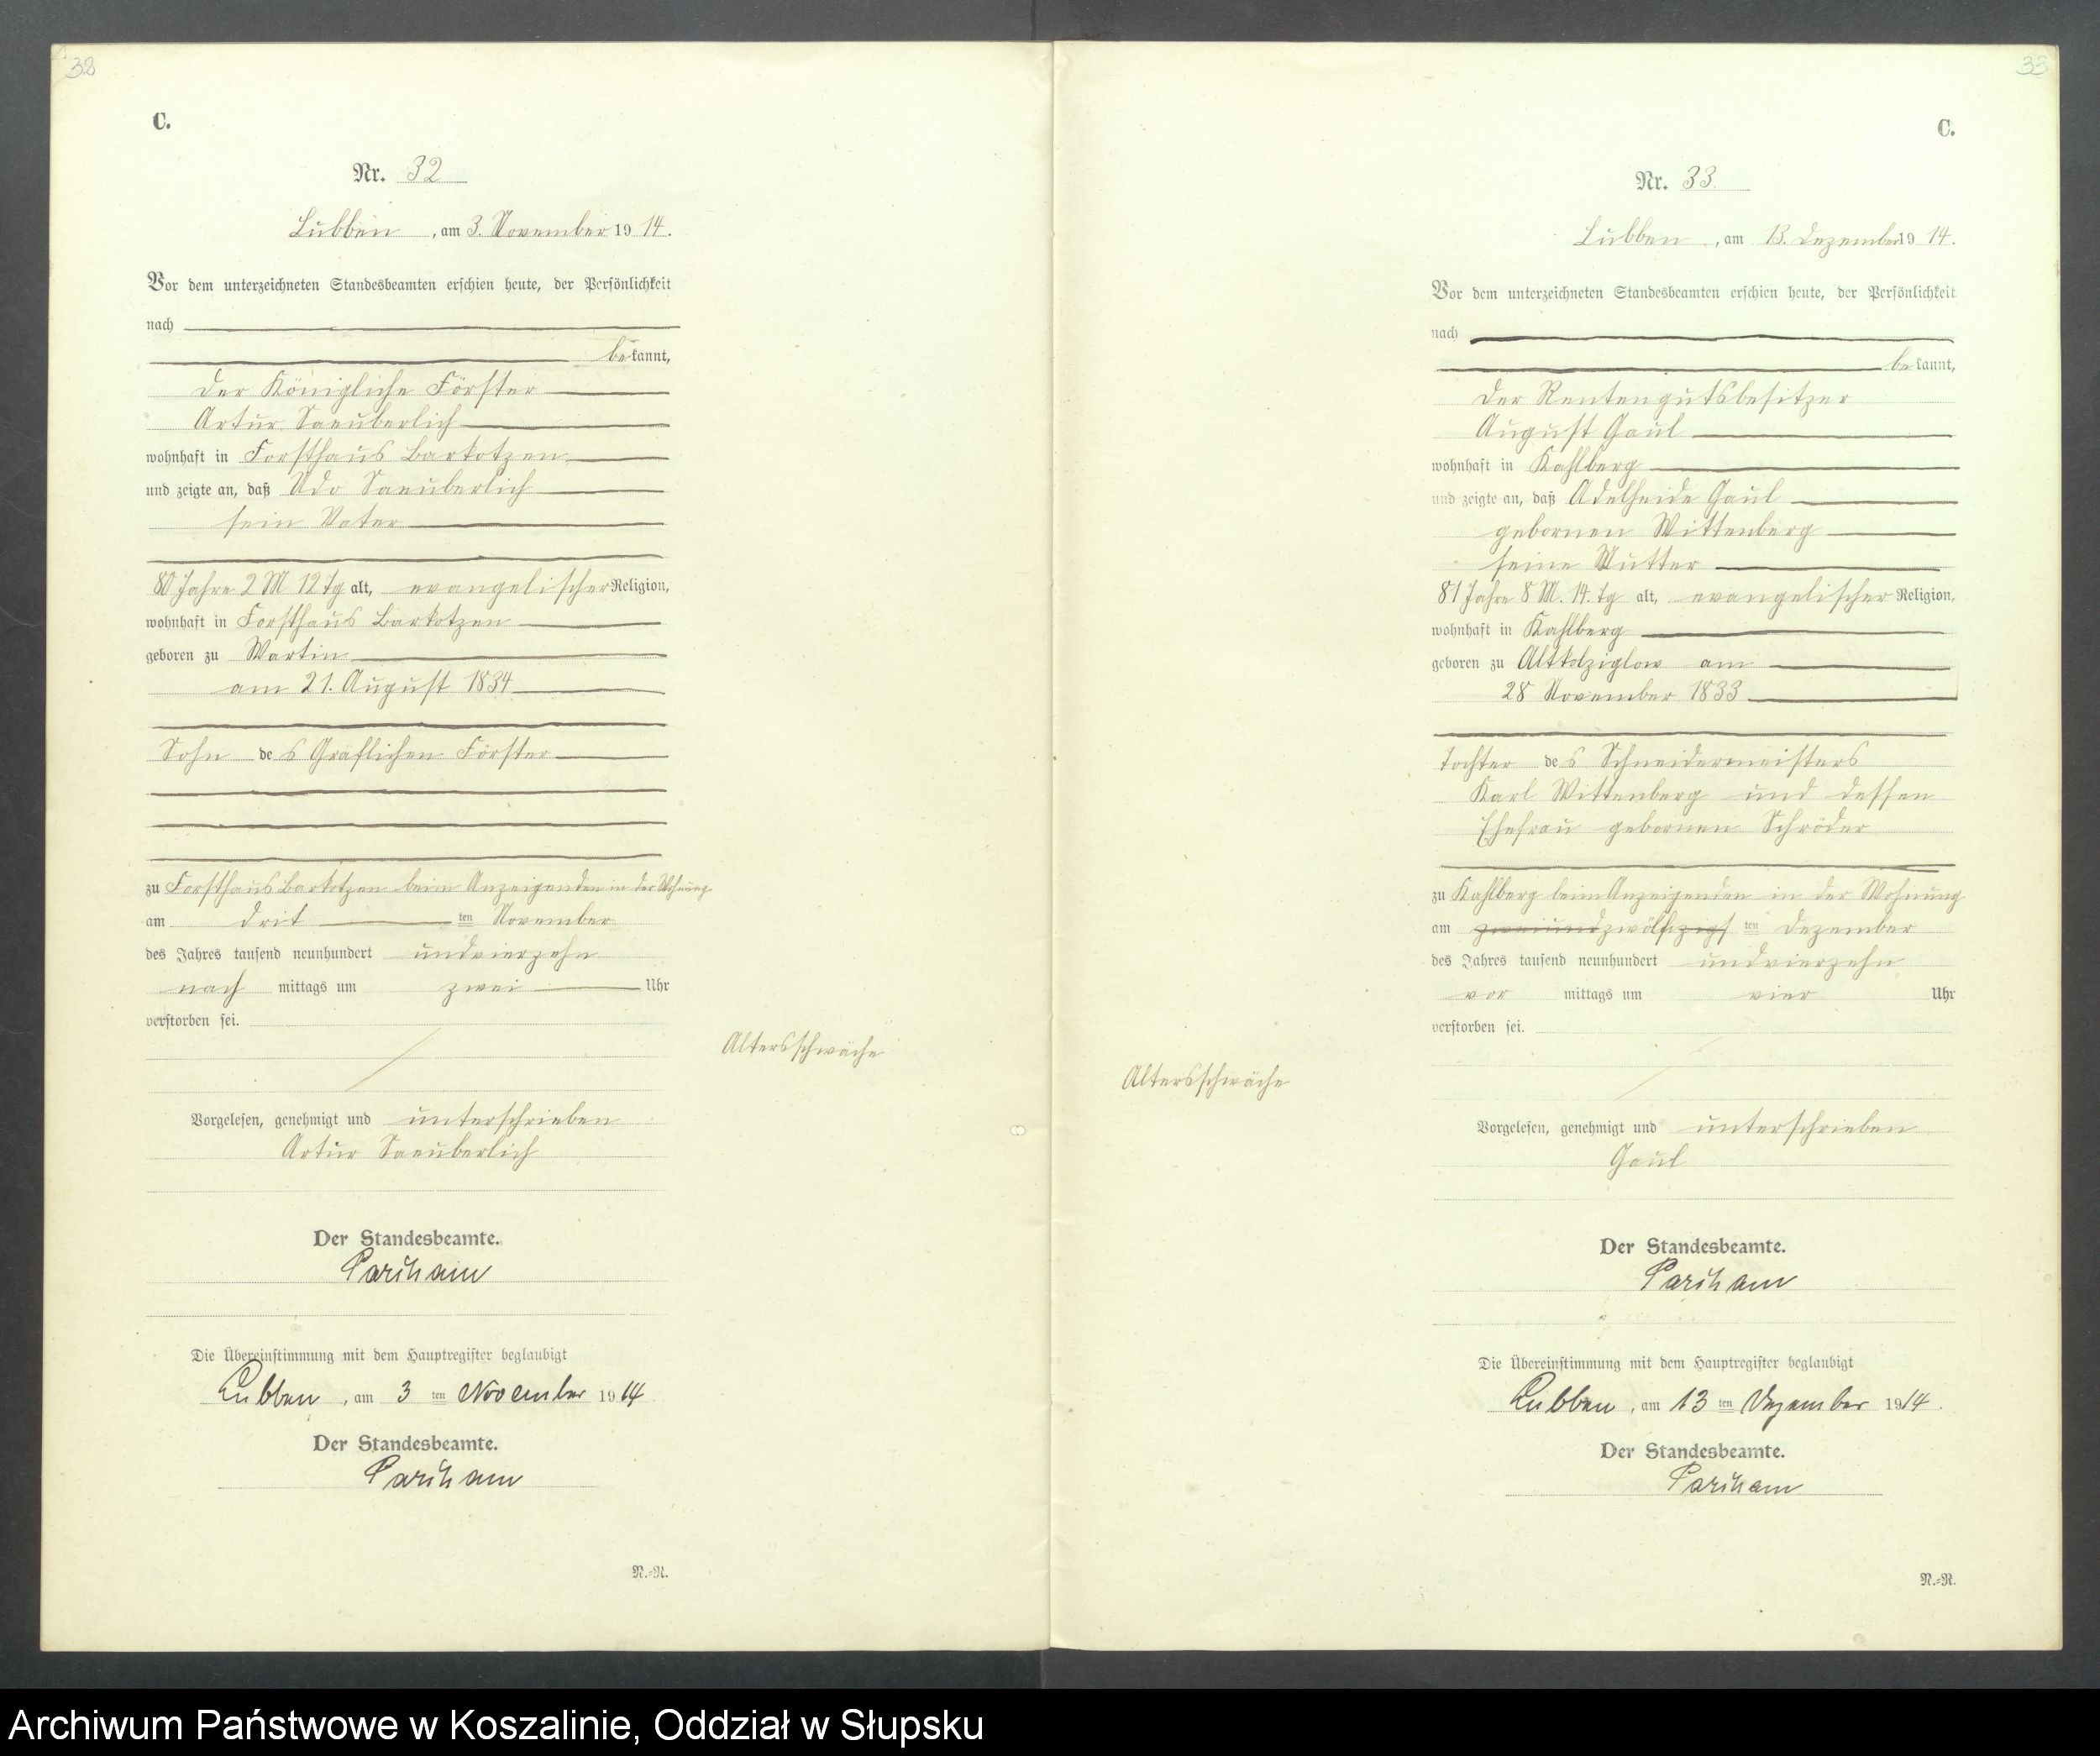 32
C.
Nr. 32
Lubben, am 3. November 1914.
Vor dem unterzeichneten Standesbeamten erschien heute, der Persönlichkeit
nach
bekannt,
der Königliche Förster
Artur Saeuberlich
wohnhaft in Forsthaus Barkotzen
und zeigte an, daß Udo Saeuberlich
sein Vater
80 Jahre 2 M 12 Tg alt, evangelischer Religion,
wohnhaft in Forsthaus Barkotzen
geboren zu Wartin
am 21. August 1834
Sohn des Gräflichen Förster
zu Forsthaus Barkotzen beim Anzeigenden in der Wohnung
am dritten November
des Jahres tausend neunhundert undvierzehn
nach mittags um zwei Uhr
verstorben sei.
Altersschwäche
Vorgelesen, genehmigt und unterschrieben
Artur Saeuberlich
Der Standesbeamte.
Die Übereinstimmung mit dem Hauptregister beglaubigt
Lubben, am 3 ten November 1914
Der Standesbeamte.
N.-R.
33
C.
Nr. 33.
Lubben, am 13. Dezember 1914.
Vor dem unterzeichneten Standesbeamten erschien heute, der Persönlichkeit
nach
bekannt,
der Rentengutsbesitzer
August Gaul
wohnhaft in Kahlberg
und zeigte an, daß Adelheide Gaul
gebornen Wittenberg
seine Mutter
81 Jahre 8 M. 14. Tg alt, evangelischer Religion,
wohnhaft in Kahlberg
geboren zu Altkolziglow am
28 November 1833
Tochter des Schneidermeisters
Karl Wittenberg und dessen
Ehefrau gebornen Schröder
zu Kahlberg beim Anzeigenden in der Wohnung
am zwölf ten Dezember
des Jahres tausend neunhundert undvierzehn
vor mittags um vier Uhr
verstorben sei.
Altersschwäche
Vorgelesen, genehmigt und unterschrieben
Gaul
Der Standesbeamte.
Die Übereinstimmung mit dem Hauptregister beglaubigt
Lubben, am 13 ten Dezember 1914.
Der Standesbeamte.
N.-R.
Archiwum Państwowe w Koszalinie, Oddział w Słupsku